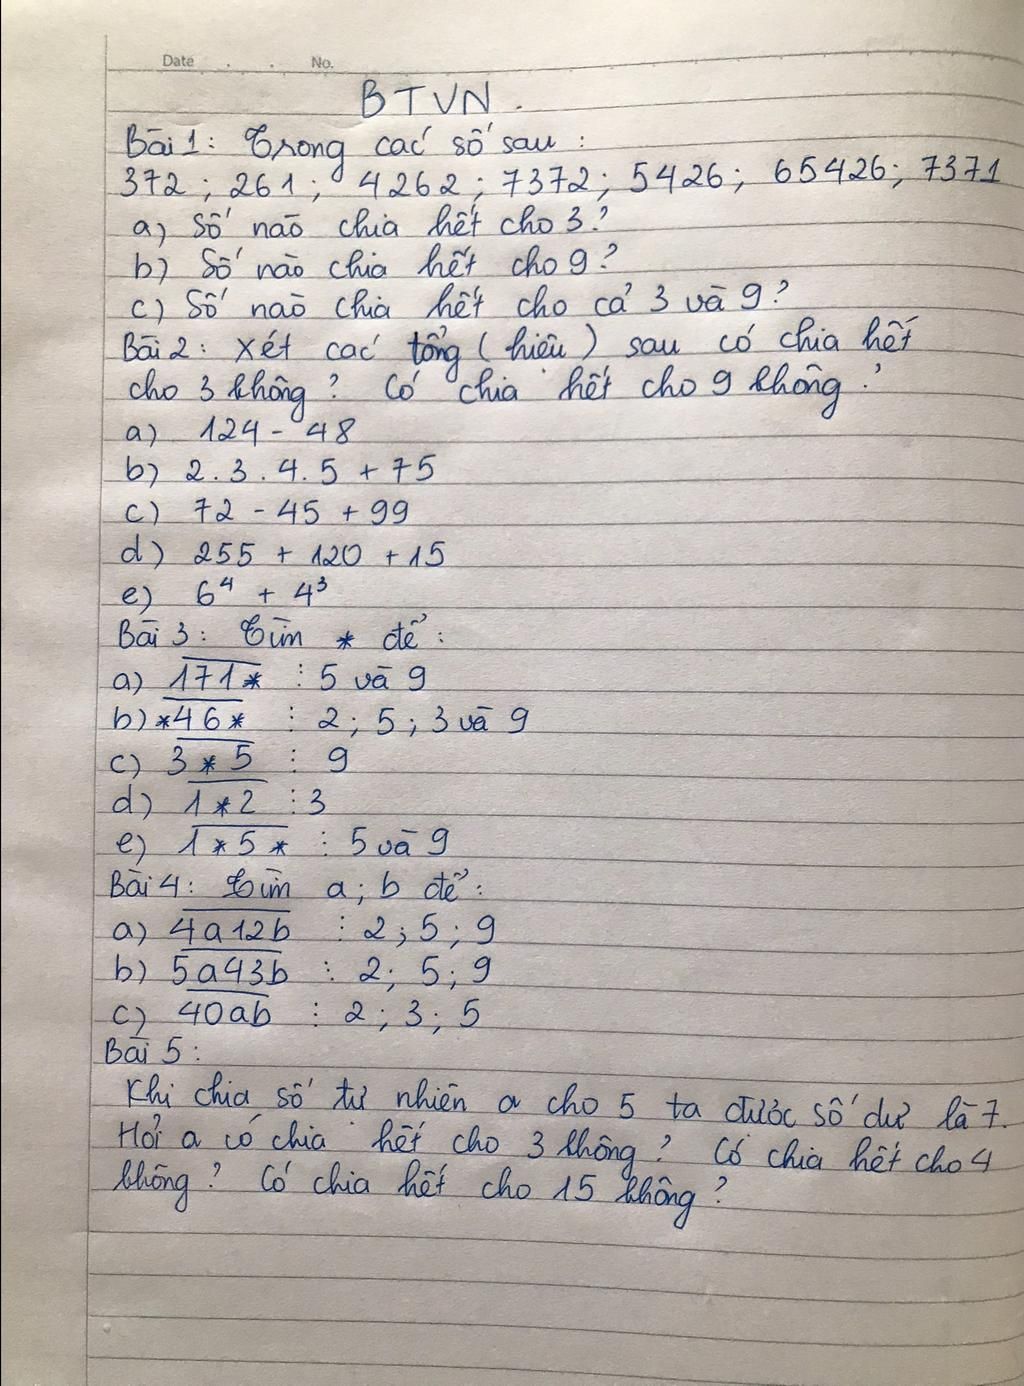 Date . . No.
BTVN.
Bài 1: Trong các số sau:
372; 261; 4262; 7372; 5426; 65426; 7371
a) Số nào chia hết cho 3?
b) Số nào chia hết cho 9?
c) Số nào chia hết cho cả 3 và 9?
Bài 2: Xét các tổng (hiệu) sau có chia hết
cho 3 không? Có chia hết cho 9 không?
a) 124 - 48
b) 2.3.4.5 + 75
c) 72 - 45 + 99
d) 255 + 120 + 15
e) 6⁴ + 4³
Bài 3: Tìm * để:
a) 171* ⋮ 5 và 9
b) *46* ⋮ 2; 5; 3 và 9
c) 3*5 ⋮ 9
d) 1*2 ⋮ 3
e) 1*5* ⋮ 5 và 9
Bài 4: Tìm a; b để:
a) 4a12b ⋮ 2; 5; 9
b) 5a43b ⋮ 2; 5; 9
c) 40ab ⋮ 2; 3; 5
Bài 5:
Khi chia số tự nhiên a cho 5 ta được số dư là 7.
Hỏi a có chia hết cho 3 không? Có chia hết cho 4
không? Có chia hết cho 15 không?